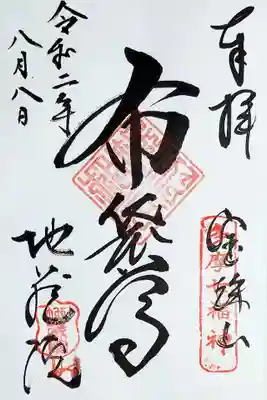 奉拝
宝珠山
布袋尊
地蔵院
令和二年
八月八日